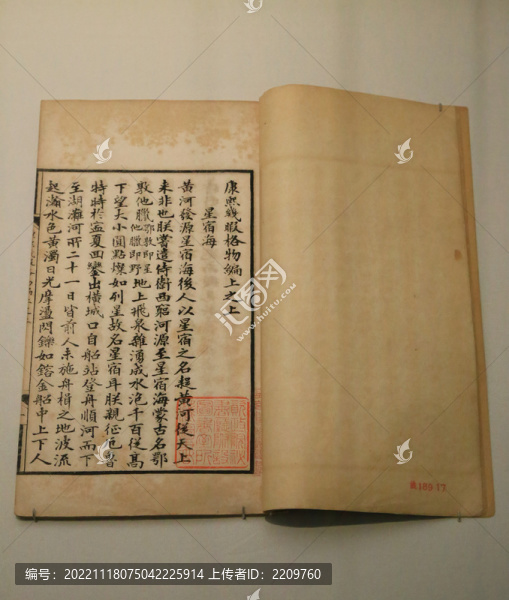 康熙几暇格物編上之上
星宿海
黄河發源星宿海後人以星宿之名疑黄河從天上
来非也朕嘗遣侍衛西窮河源至星宿海蒙古名鄂
敦他臘鄂敦即星他臘即野地上飛泉雜湧成水泡千百從高
下望大小圓點燦如列星故名星宿耳朕親征厄魯
特時於寧夏回鑾出横城口自船站登舟順河而下
至湖灘河所二十一日皆前人未施舟楫之地波流
起瀚水色黄濁日光摩盪閃鑠如鎔金船中上下人
藏 189 17
编号：20221118075042225914 上传者ID：2209760
摄图网
www.huitu.com